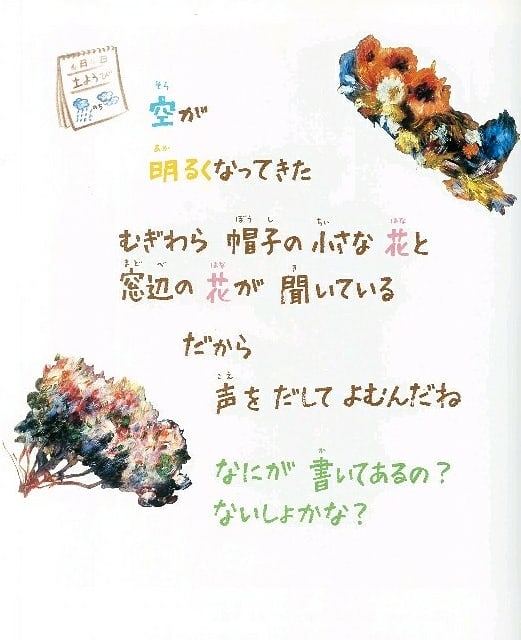 土ようび
のち
空が
明るくなってきた
むぎわら 帽子の 小さな 花と
窓辺の 花が 聞いている
だから
声を だして よむんだね
なにが 書いてあるの?
ないしょかな?